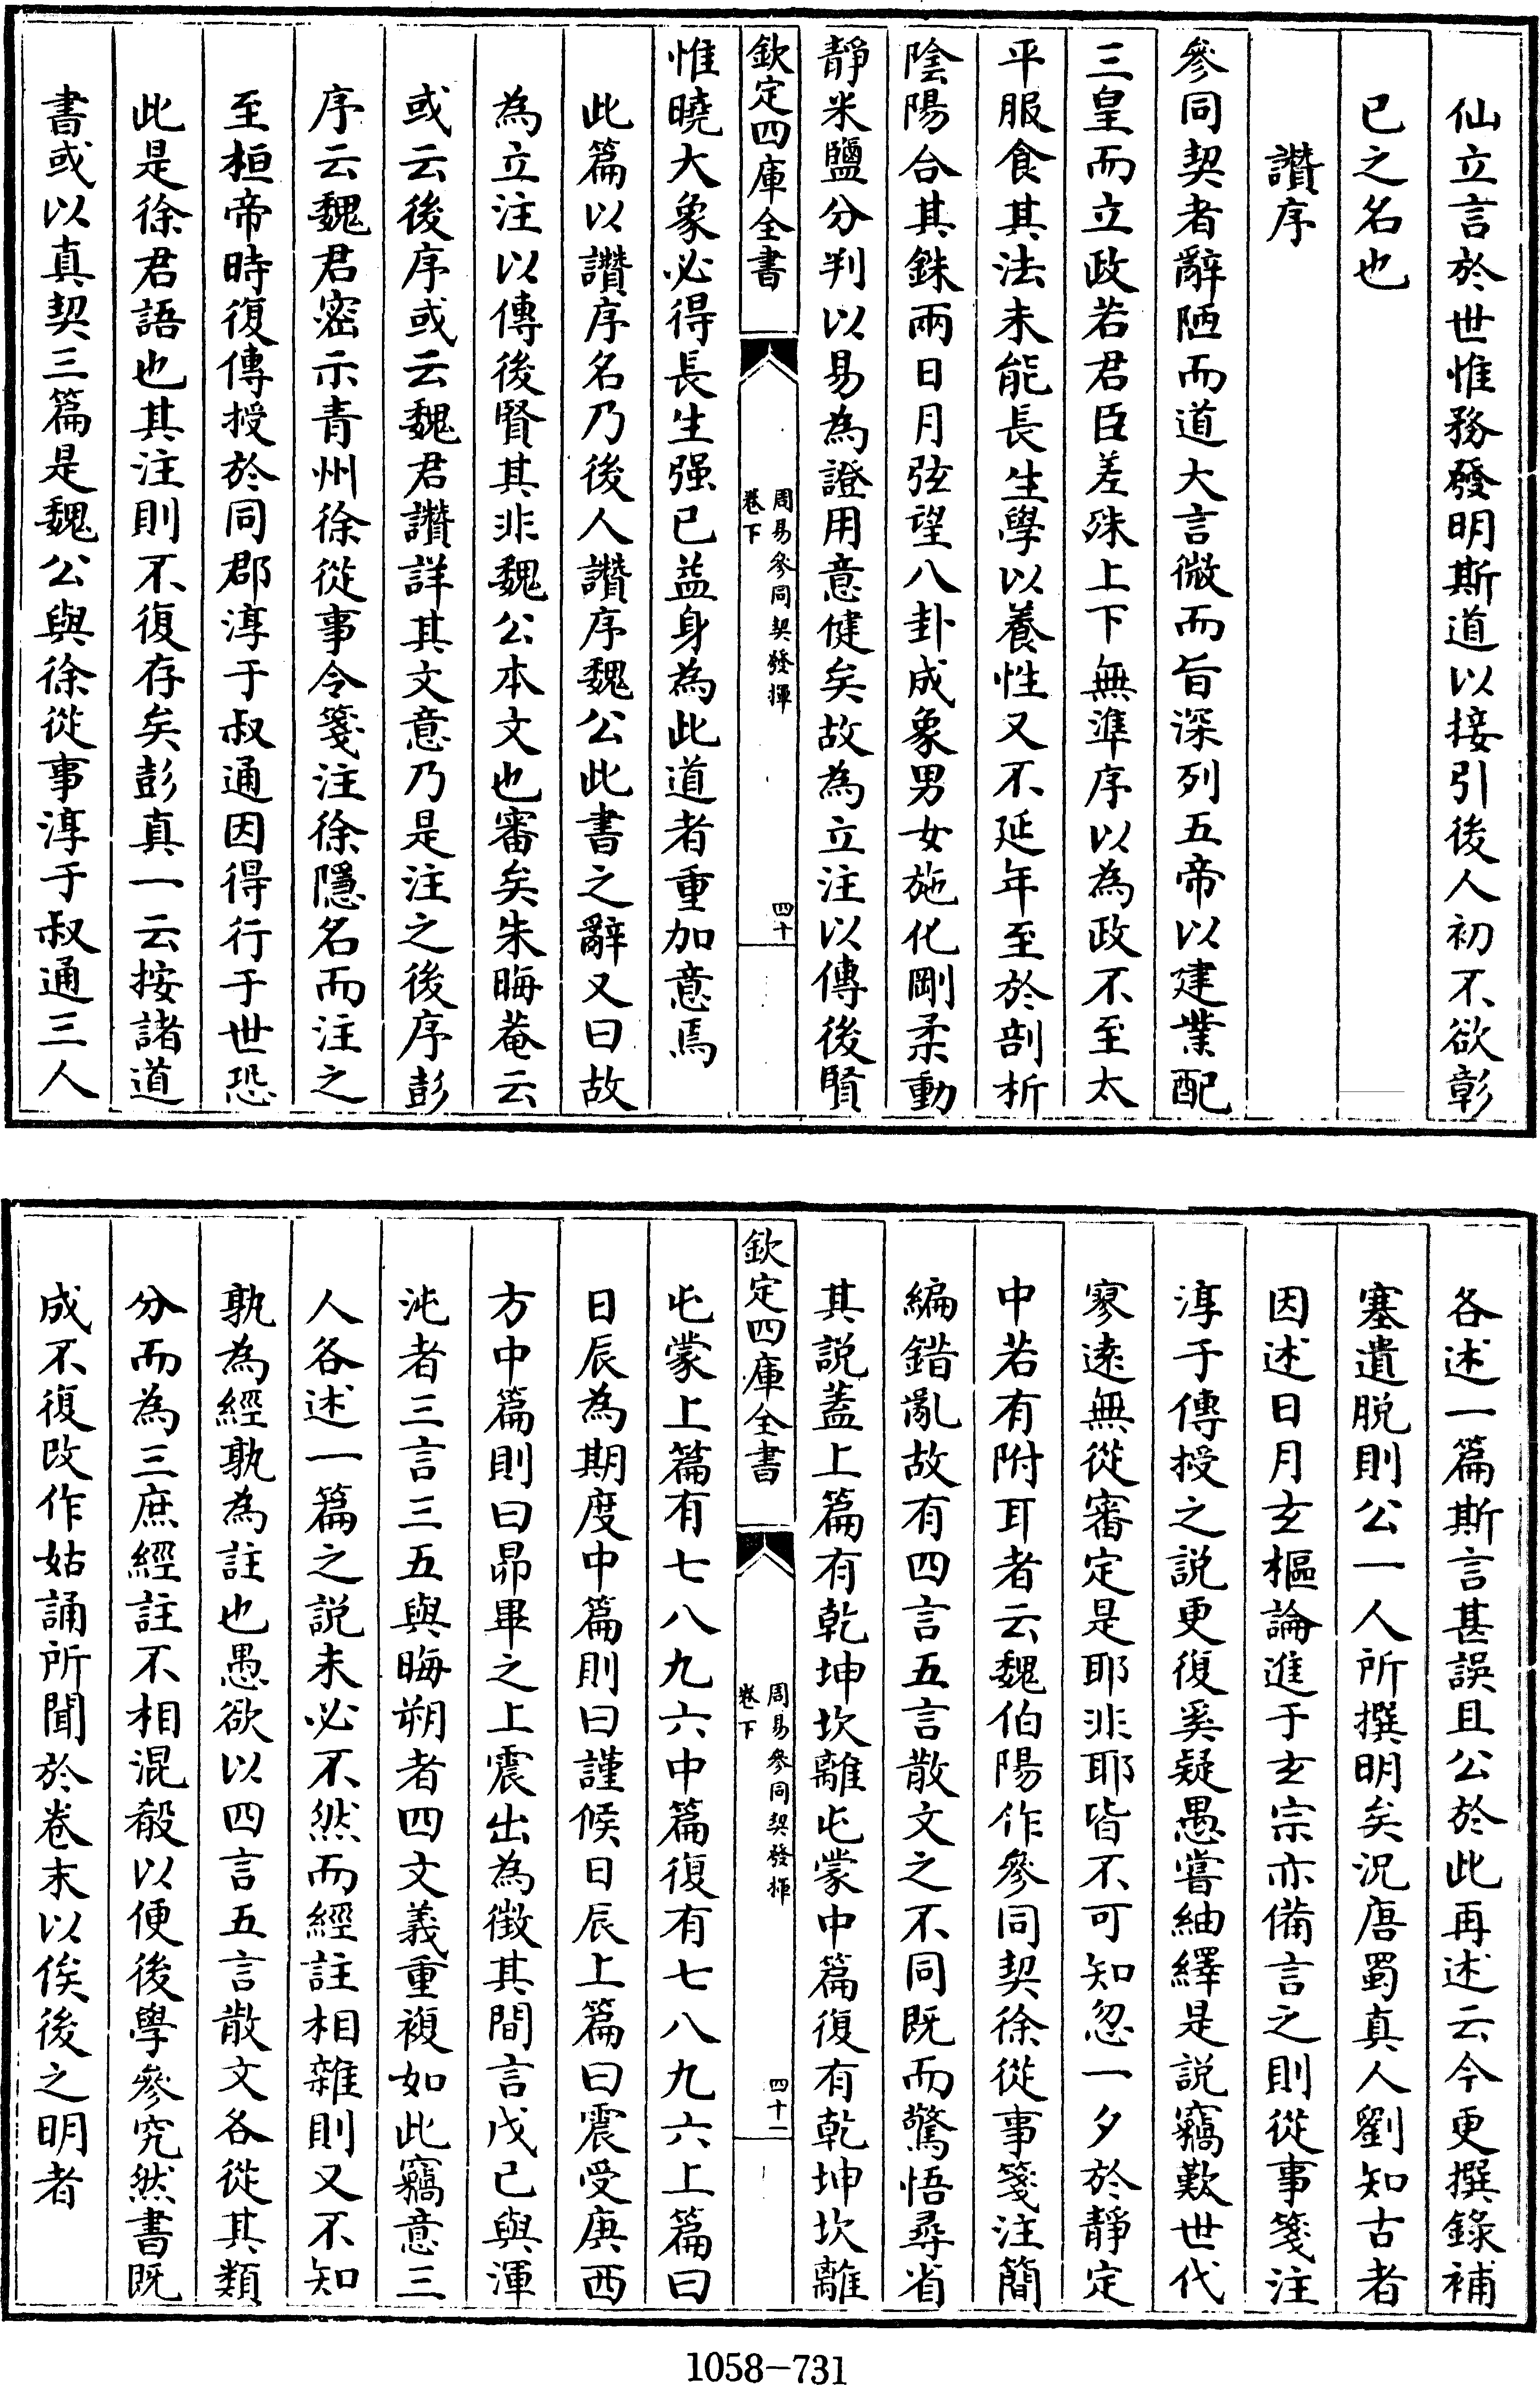 仙立言於世惟務發明斯道以接引後人初不欲彰
已之名也
讚序
參同契者辭陋而道大言微而旨深列五帝以建業配
三皇而立政若君臣差殊上下無準序以為政不至太
平服食其法未能長生學以養性又不延年至於剖析
陰陽合其銖兩日月弦望八卦成象男女施化剛柔動
靜米鹽分判以易為證用意健矣故為立注以傳後賢
欽定四庫全書
周易參同契發揮
卷下
四十
惟曉大象必得長生强已益身為此道者重加意焉
此篇以讚序名乃後人讚序魏公此書之辭又曰故
為立注以傳後賢其非魏公本文也審矣朱晦菴云
或云後序或云魏君讚詳其文意乃是注之後序彭
序云魏君密示青州徐從事令箋注徐隱名而注之
至桓帝時復傳授於同郡淳于叔通因得行于世恐
此是徐君語也其注則不復存矣彭真一云按諸道
書或以真契三篇是魏公與徐從事淳于叔通三人
各述一篇斯言甚誤且公於此再述云今更撰錄補
塞遺脱則公一人所撰明矣況唐蜀真人劉知古者
因述日月玄樞論進于玄宗亦備言之則從事箋注
淳于傳授之説更復奚疑愚嘗紬繹是説竊歎世代
寥遠無從審定是耶非耶皆不可知忽一夕於靜定
中若有附耳者云魏伯陽作參同契徐從事箋注簡
編錯亂故有四言五言散文之不同既而驚悟尋省
其説蓋上篇有乾坤坎離屯蒙中篇復有乾坤坎離
欽定四庫全書
周易參同契發揮
卷下
四十一
屯蒙上篇有七八九六中篇復有七八九六上篇曰
日辰為期度中篇則曰謹候日辰上篇曰震受庚西
方中篇則曰昴畢之上震出為徴其間言戊已與渾
沌者三言三五與晦朔者四文義重複如此竊意三
人各述一篇之説未必不然而經註相雜則又不知
孰為經孰為註也愚欲以四言五言散文各從其類
分而為三庶經註不相混殽以便後學參究然書既
成不復改作姑誦所聞於卷末以俟後之明者
1058-731